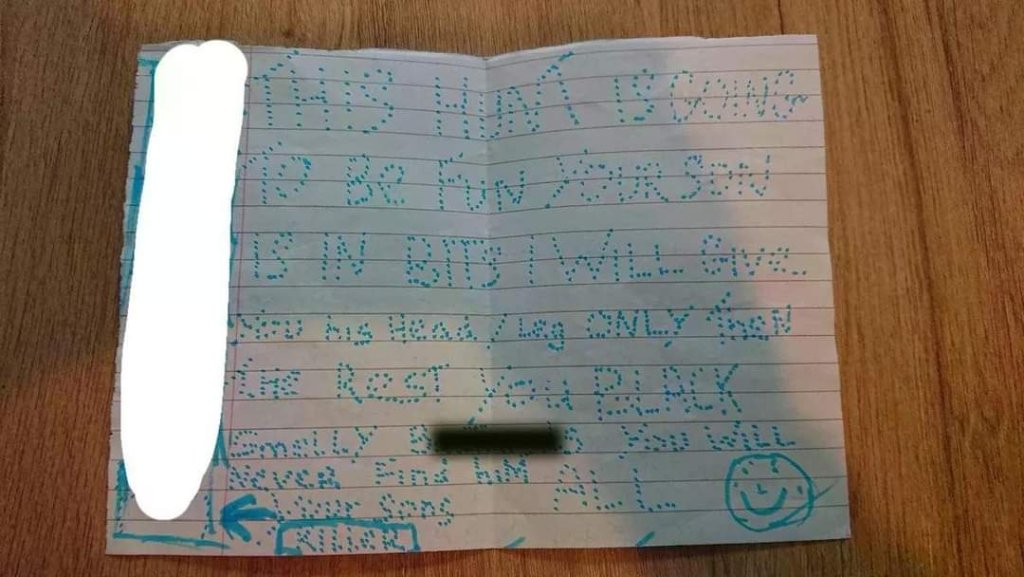 THIS HUNT IS GOING
TO BE FUN YOUR SON
IS IN BITS I WILL Give
You his HEAD/Leg ONLY then
the ReST You BLACK
SmeLLY B S You WILL
Never Find HIM ALL
Your Sons
KILLER